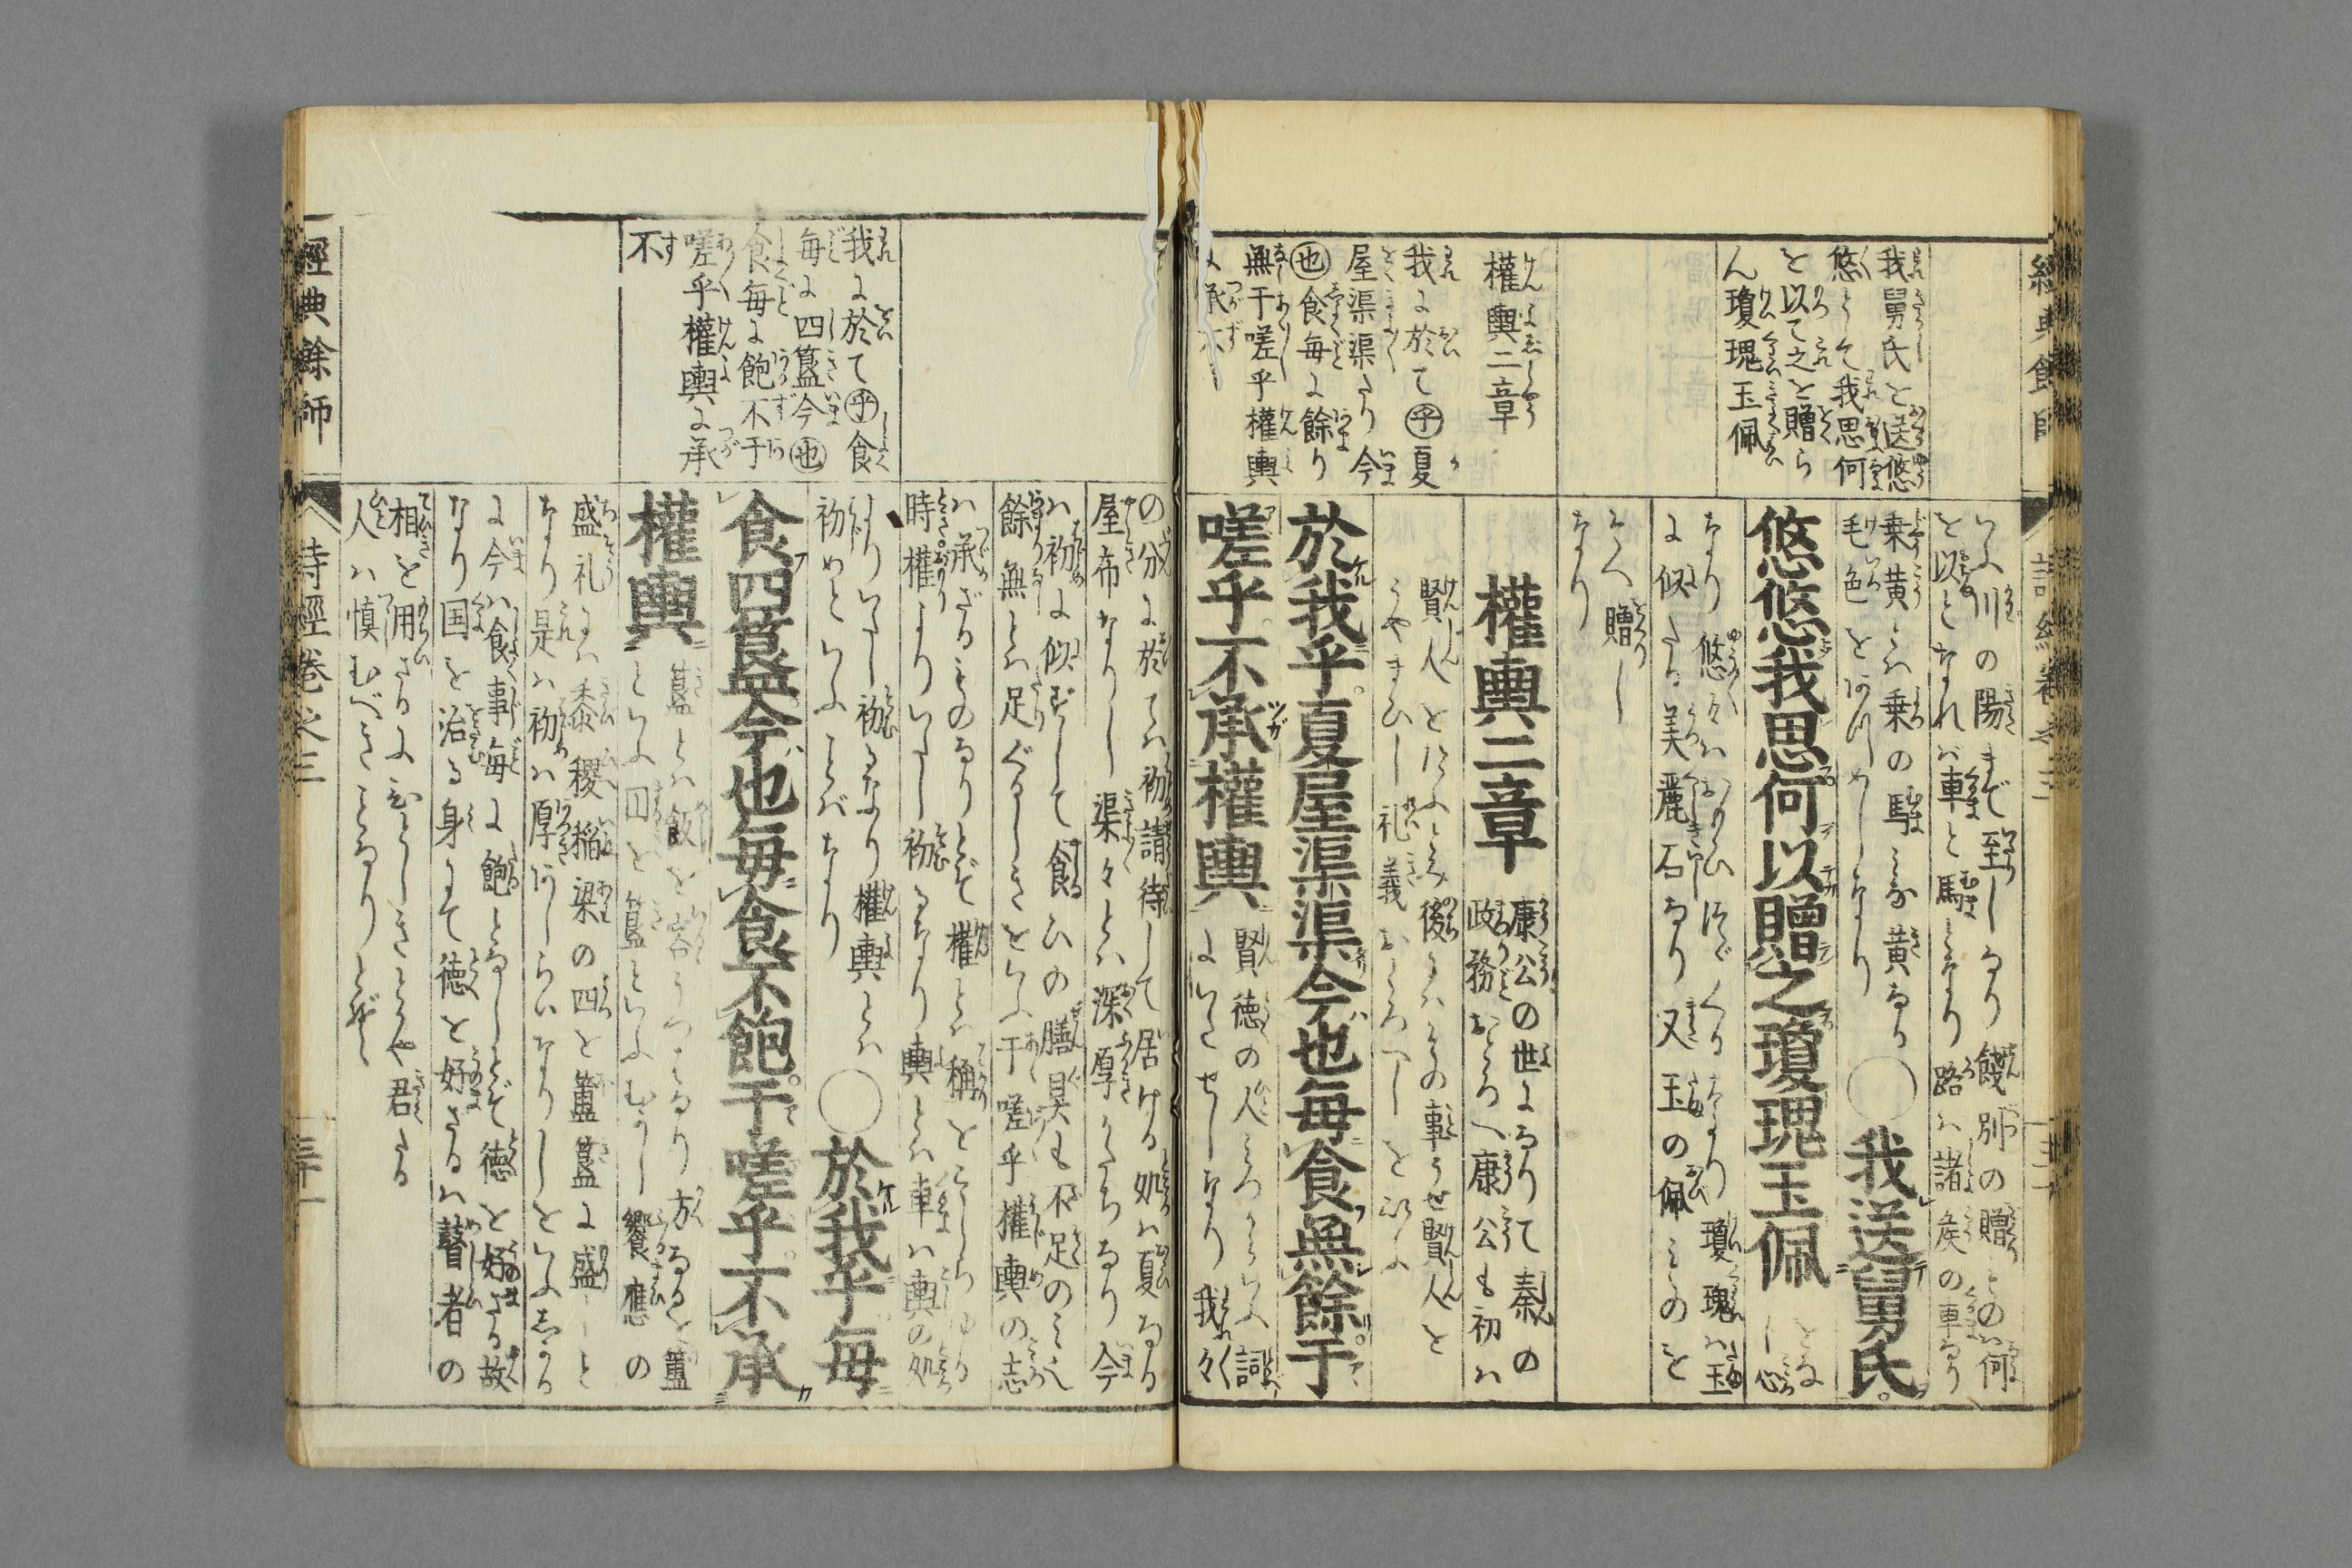 我舅氏を送悠
悠として我思何
を以て之を贈ら
ん瓊瑰玉佩
權輿二章
我に於て乎夏
屋渠渠たり今
也食毎に餘り
無于嗟乎權輿
に承不
いふ川の陽まで至しなり餞別の贈ものに何
を以となれば車と馬となり路は諸侯の車なり
乗黄とは乗の馬みな黄なる
毛色をいひしなり○我送舅氏
悠悠我思何以贈之瓊瑰玉佩
なり悠々はおもひつゞくるなり瓊瑰は玉
に似たる美麗石なり又玉の佩ものを
そへ贈し
なり
權輿二章
康公の世になりて秦の
政務おとろへ康公も初は
賢人を後にはその事うせ賢人を
うやまひし礼義おとろへしを
於我乎夏屋渠渠今也毎食無餘于
嗟乎不承權輿
賢徳の人みづからいふ詞
にいたせしなり我々
の分に於ては初請待して居ける処は夏なる
屋布なりし渠々とは深厚かたちなり今
は初に似ずして食ひの膳具も不足のみに
餘無とは足ぐるしきをいふ于嗟乎權輿の志
は承ざるものなりとぞ權とは稱をこしらゆる
時權よりいたし初るなり輿とは車は輿の処
よりいたし初るなり權輿とは
初めといふことばなり
○於我乎毎
食四簋今也毎食不飽于嗟乎不承
權輿
簋とは飯を容うつはなり方なるを簠
といふ円を簋といふむかし饗應の
盛礼には黍稷稲梁の四を簠簋に盛しと
なり是は初は厚あしらいなりしをいふしかる
に今は食事毎に飽となしとぞ徳を好ざる故
なり国を治る身にて徳を好ざるは瞽者の
相を用ざるにひとしきとや君たる
人は慎むべきことなりとぞ
我に於て乎食
毎に四簋今也
食毎に飽不于
嗟乎權輿に承
不
經典餘師
詩經卷之三
三十一